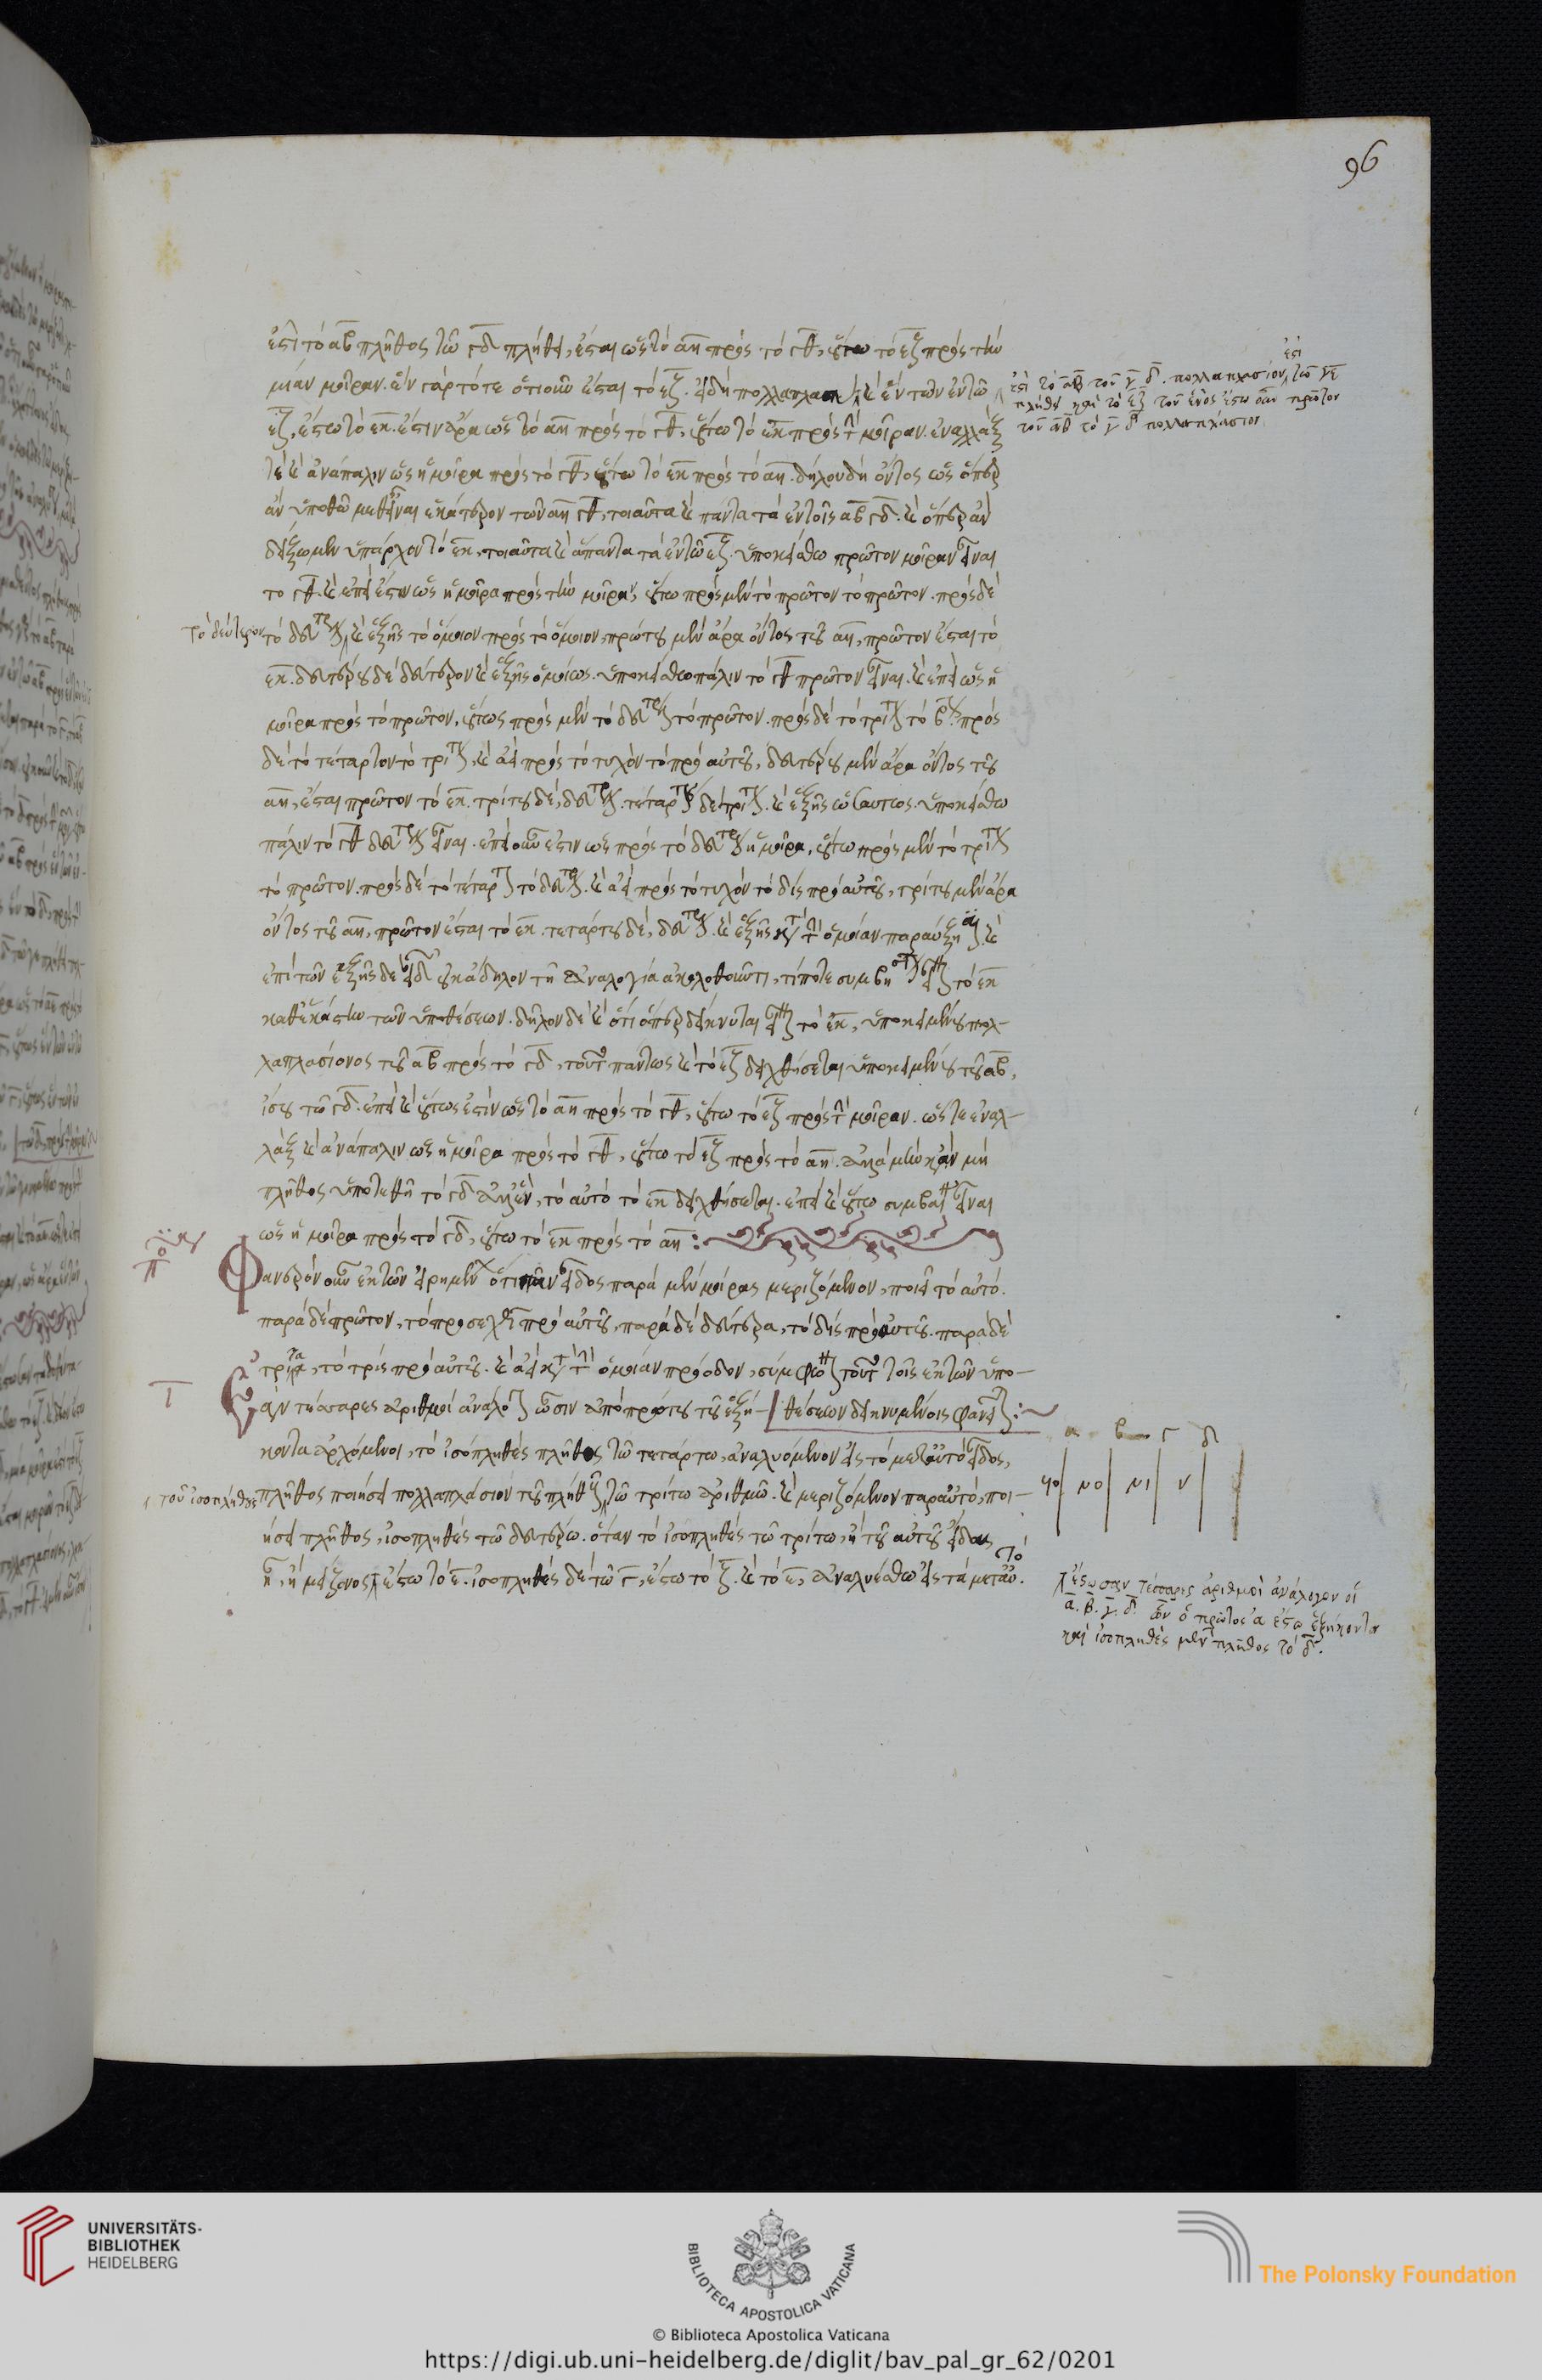 96
ἐπὶ τὸ αβ πλῆθος τῶ γδ πλήθει, ἔσται ὡς τὸ αη πρὸς τὸ γθ, οὕτω τὸ εζ πρὸς τὴν
μίαν μοῖραν. ἓν γὰρ τότε ὁτιοῦν ἔσται τὸ εζ. εἰ δὴ πολλαπλασι καὶ ἓν τῶν ἐν τῶ
εζ, ἔστω τὸ εκ. ἔστιν ἄρα ὡς τὸ αη πρὸς τὸ γθ, οὕτω τὸ εκ πρὸς τὴν μοῖραν. ἐναλλάξ
τὲ καὶ ἀνάπαλιν ὡς ἡ μοῖρα πρὸς τὸ γθ, οὕτω τὸ εκ πρὸς τὸ αη. δήλον δὴ ὄντος ὡς ὅπερ
ἂν ὑποθώμεθα εἶναι ἑκάτερον τῶν αη γθ, τοιαῦτα καὶ πάντα τὰ ἐν τοῖς αβ γδ. καὶ ὅπερ ἂν
δείξωμεν ὑπάρχον τὸ εκ, τοιαῦτα καὶ ἅπαντα τὰ ἐν τῶ εζ. ὑποκείσθω πρῶτον μοῖραν εἶναι
το γθ. καὶ ἐπεί ἐστιν ὡς ἡ μοῖρα πρὸς τὴν μοῖραν, οὕτω πρὸς μὲν τὸ πρῶτον τὸ πρῶτον. πρὸς δὲ
τὸ δεύτερον τὸ δεύτερον καὶ ἑξῆς τὸ ὅμοιον πρὸς τὸ ὅμοιον, πρώτου μὲν ἄρα ὄντος τοῦ αη, πρῶτον ἔσται τὸ
εκ. δευτέρου δὲ δεύτερον καὶ ἑξῆς ὁμοίως. ὑποκείσθω πάλιν τὸ γθ πρῶτον εἶναι. καὶ ἐπεὶ ὡς ἡ
μοῖρα πρὸς τὸ πρῶτον, οὕτως πρὸς μὲν τὸ δεύτερον τὸ πρῶτον. πρὸς δὲ τὸ τρίτον τὸ βον. πρὸς
δὲ τὸ τέταρτον τὸ τρίτον, καὶ ἀεὶ πρὸς τὸ τυχὸν τὸ πρὸ αὐτοῦ, δευτέρου μὲν ἄρα ὄντος τοῦ
αη, ἔσται πρῶτον τὸ εκ. τρίτου δὲ, δεύτερον. τετάρτου δὲ τρίτον. καὶ ἑξῆς ὡσαύτως. ὑποκείσθω
πάλιν τὸ γθ δεύτερον εἶναι. ἐπεὶ οὖν ἐστιν ὡς πρὸς τὸ δεύτερον ἡ μοῖρα, οὕτω πρὸς μὲν τὸ τρίτον
τὸ πρῶτον. πρὸς δὲ τὸ τέταρτον τὸ δεύτερον. καὶ ἀεὶ πρὸς τὸ τυχὸν τὸ δὶς πρὸ αὐτοῦ, τρίτου μὲν ἄρα
ὄντος τοῦ αη, πρῶτον ἔσται τὸ εκ. τετάρτου δὲ, δεύτερον. καὶ ἑξῆς κατὰ τὴν ὁμοίαν παραύξησιν. καὶ
ἐπὶ τῶν ἑξῆς δὲ εἰδῶν οὐκ ἄδηλον τῆ ἀναλογία ἀκολουθοῦντι, τί ποτε συμβήσεται εἶναι τὸ εκ
καθ' ἑκάστην τῶν ὑποθέσεων. δῆλον δὲ καὶ ὅτι ὅπερ δείκνυται εἶναι τὸ εκ, ὑποκειμένου πολ-
λαπλασίονος τοῦ αβ πρὸς τὸ γδ, τοῦτο πάντως καὶ τὸ εζ δειχθήσεται ὑποκειμένου τοῦ αβ,
ἴσου τῶ γδ. ἐπεὶ καὶ οὕτως ἐστὶν ὡς τὸ αη πρὸς τὸ γθ, οὕτω τὸ εζ πρὸς τὴν μοῖραν. ὥστε ἐναλ-
λὰξ καὶ ἀνάπαλιν ὡς ἡ μοῖρα πρὸς τὸ γθ, οὕτω τὸ εζ πρὸς τὸ αη. ἀλλὰ μὴν κἂν μὴ
πλῆθος ὑποτεθῆ τὸ γδ ἀλλ' ἓν, τὸ αὐτὸ τὸ εκ δειχθήσεται. ἐπεὶ καὶ οὕτω συμβαίνει εἶναι
ὡς ἡ μοῖρα πρὸς τὸ γδ, οὕτω τὸ εκ πρὸς τὸ αη :
Φανερὸν οὖν ἐκ τῶν εἰρημένων ὅτι πᾶν εἶδος παρὰ μὲν μοίρας μεριζόμενον, ποιεῖ τὸ αὐτό.
παρὰ δὲ πρῶτον, τὸ προσεχῶς πρὸ αὐτοῦ, παρὰ δὲ δεύτερα, τὸ δὶς πρὸ αὐτοῦ. παρὰ δὲ
τρίτα, τὸ τρὶς πρὸ αὐτοῦ. καὶ ἀεὶ κατὰ τὴν ὁμοίαν πρόοδον, σύμφωνον τοῦτο τοῖς ἐκ τῶν ὑπο-
θέσεων δεικνυμένοις φανεῖται :
Ἐὰν τέσσαρες ἀριθμοὶ ἀνάλογον ὦσιν ἀπὸ πρώτου τοῦ ἑξή-
κοντα ἀρχόμενοι, τὸ ἰσόπληθες πλῆθος τῶ τετάρτω, ἀναλυόμενον εἰς τὸ μετ' αὐτὸ εἶδος,
πλῆθος ποιήσει πολλαπλάσιον τοῦ πλήθους τοῦ ἰσοπλήθους τῶ τρίτω ἀριθμῶ. καὶ μεριζόμενον παρ' αὐτὸ, ποι-
ήσει πλῆθος, ἰσοπληθὲς τῶ δευτέρω. ὅταν τὸ ἰσοπληθὲς τῶ τρίτω, ἢ τοῦ αὐτοῦ εἴδους
ἦ, ἢ μείζονος ἔστω τὸ ε. ἰσοπληθὲς δὲ τῶ γ, ἔστω τὸ ζ. καὶ τὸ ε, ἀναλυέσθω εἰς τὰ μετ' αὐτό.
ἐπὶ τὸ αβ τοῦ γ δ. πολλαπλάσιον, ἐπὶ τῶ γδ
πλήθει καὶ τὸ εζ τοῦ ἑνὸς ἔστω οὖν πρῶτον
τοῦ αβ τὸ γ δ πολλαπλάσιον
α β γ δ
ἔστωσαν τέσσαρες ἀριθμοὶ ἀνάλογον οἱ
α. β. γ. δ. ὧν ὁ πρῶτος α ἔστω ἑξήκοντα
καὶ ἰσοπληθὲς μὲν πλῆθος τῶ δ.
UNIVERSITÄTS-
BIBLIOTHEK
HEIDELBERG
BIBLIOTECA APOSTOLICA VATICANA
The Polonsky Foundation
© Biblioteca Apostolica Vaticana
https://digi.ub.uni-heidelberg.de/diglit/bav_pal_gr_62/0201